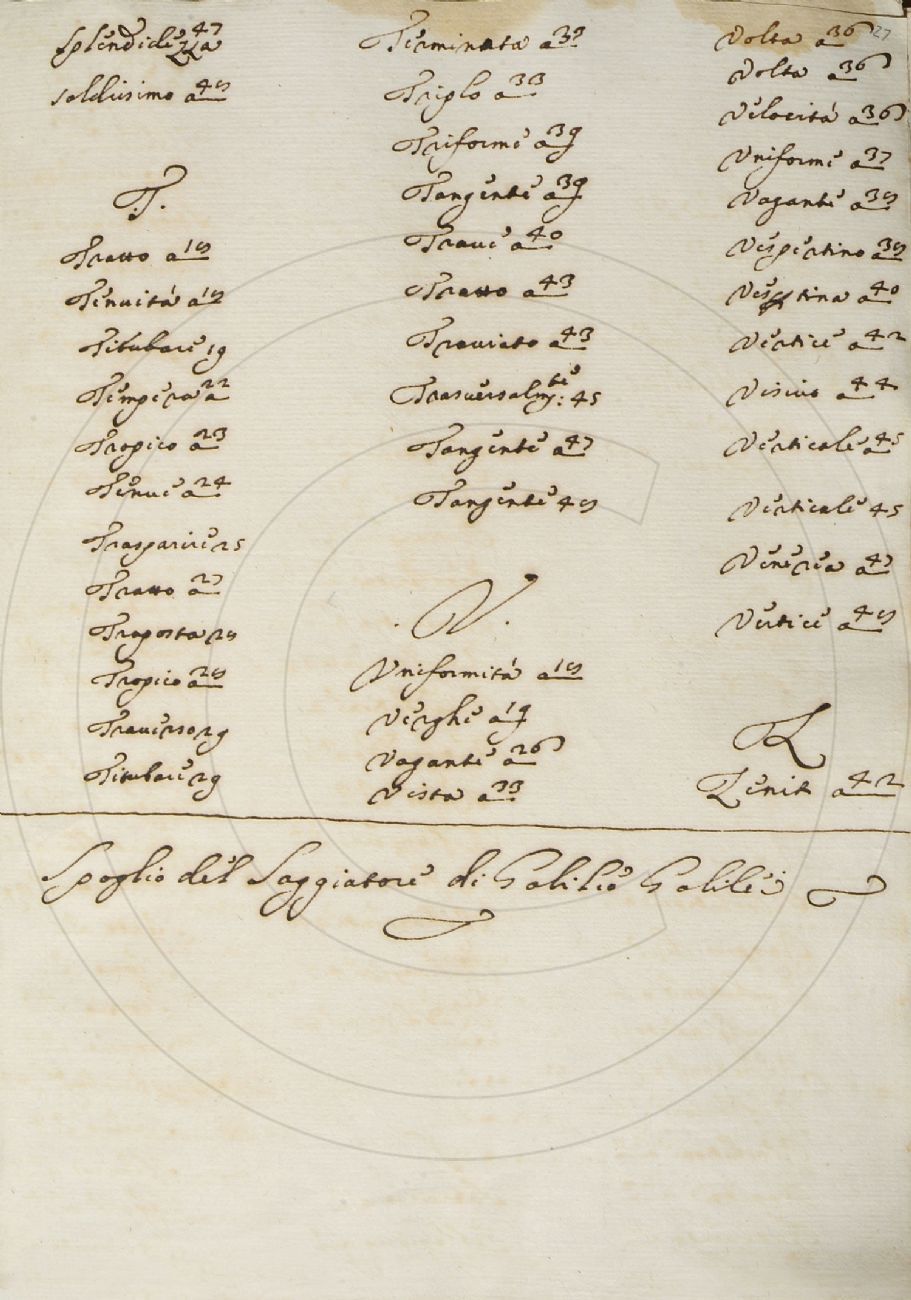 Splendidezza 47
Soldissimo a 4s
T.
Tratto a 1s
Tenuità a 1s
Titubare 19
Tempera a 22
Tropico a 23
Tenue a 24
Trasparire 25
Tratto a 27
Traposta 2s
Tropico a 2s
Traverso 29
Titubare 29
Terminata a
Triplo a 33
Triforme a 39
Tangente a 39
Trave a 40
Tratto a 43
Traviato a 43
Trasversalm.te: 45
Tangente a 47
Tangente 4s
.V.
Uniformità a 1s
Verghe a 19
Vagante a 26
Vista a 33
27
Volta a 36
Volta a 36
Velocità a 36
Uniforme a 37
Vagante a 3s
Vespertino a 3s
a 40
Vertice a 42
Visivo a 44
Verticale a 45
Verticale 45
Venerea a 47
Vertice a 4s
Z
Zenit a 42
Spoglio del Saggiatore di Galileo Galilei